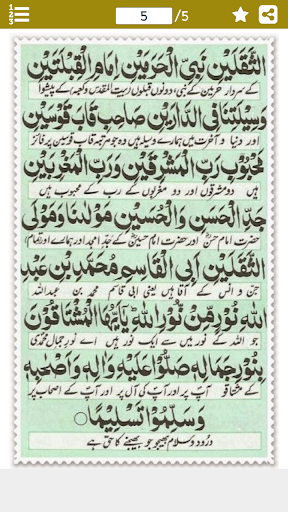 5 /5
الثَّقَلَيْنِ نَبِيِّ الْحَرَمَيْنِ اِمَامِ الْقِبْلَتَيْنِ
کے سردار حرمین کے نبی ، دونوں قبلوں (بیت المقدس و کعبہ) کے پیشوا
وَسِيْلَتِنَا فِي الدَّارَيْنِ صَاحِبِ قَابَ قَوْسَيْنِ
اور دنیا و آخرت میں ہمارے وسیلہ ہیں وہ جو مرتبہ قاب قوسین پر فائز
مَحْبُوْبِ رَبِّ الْمَشْرِقَيْنِ وَرَبِّ الْمَغْرِبَيْنِ
ہیں دو مشرقوں اور دو مغربوں کے رب کے محبوب ہیں
جَدِّ الْحَسَنِ وَالْحُسَيْنِ مَوْلٰىنَا وَمَوْلَى
حضرت امام حسن اور حضرت امام حسین کے جد امجد اور ہمارے اور (تمام)
الثَّقَلَيْنِ اَبِي الْقَاسِمِ مُحَمَّدِ بْنِ عَبْدِ
جن و انس کے آقا ہیں یعنی ابی قاسم محمد بن عبداللہ
اللهِ نُوْرٍ مِّنْ نُوْرِ اللهِ يٰاَيُّهَا الْمُشْتَاقُوْنَ
جو اللہ کے نور میں سے نور ہیں اے نور جمال محمدی
بِنُوْرِ جَمَالِهٖ صَلُّوْا عَلَيْهِ وَاٰلِهٖ وَاَصْحٰبِهٖ
کے مشتاقو آپ پر اور آپ کی آل پر اور آپ کے اصحاب پر
وَسَلِّمُوْا تَسْلِيْمًا
درود و سلام بھیجو جو بھیجنے کا حق ہے